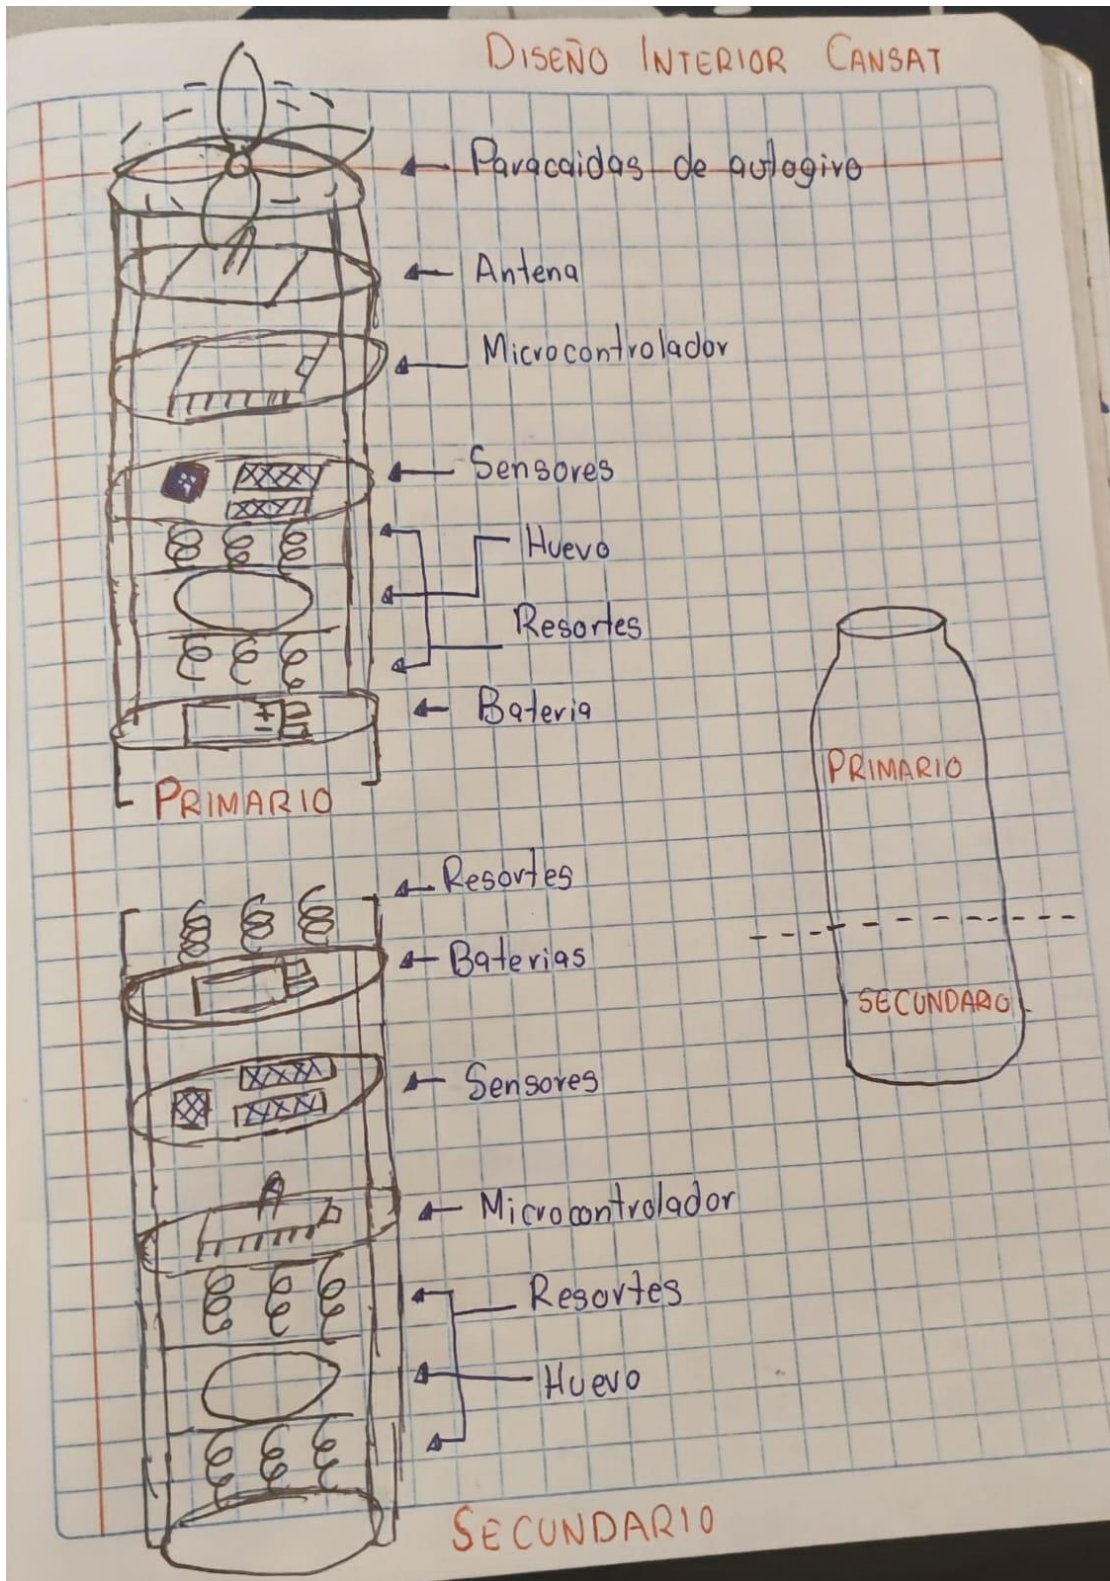 DISEÑO INTERIOR CANSAT
Paracaidas de autogiro
Antena
Microcontrolador
Sensores
Huevo
Resortes
Bateria
PRIMARIO
Resortes
Baterias
Sensores
Microcontrolador
Resortes
Huevo
SECUNDARIO
PRIMARIO
SECUNDARIO